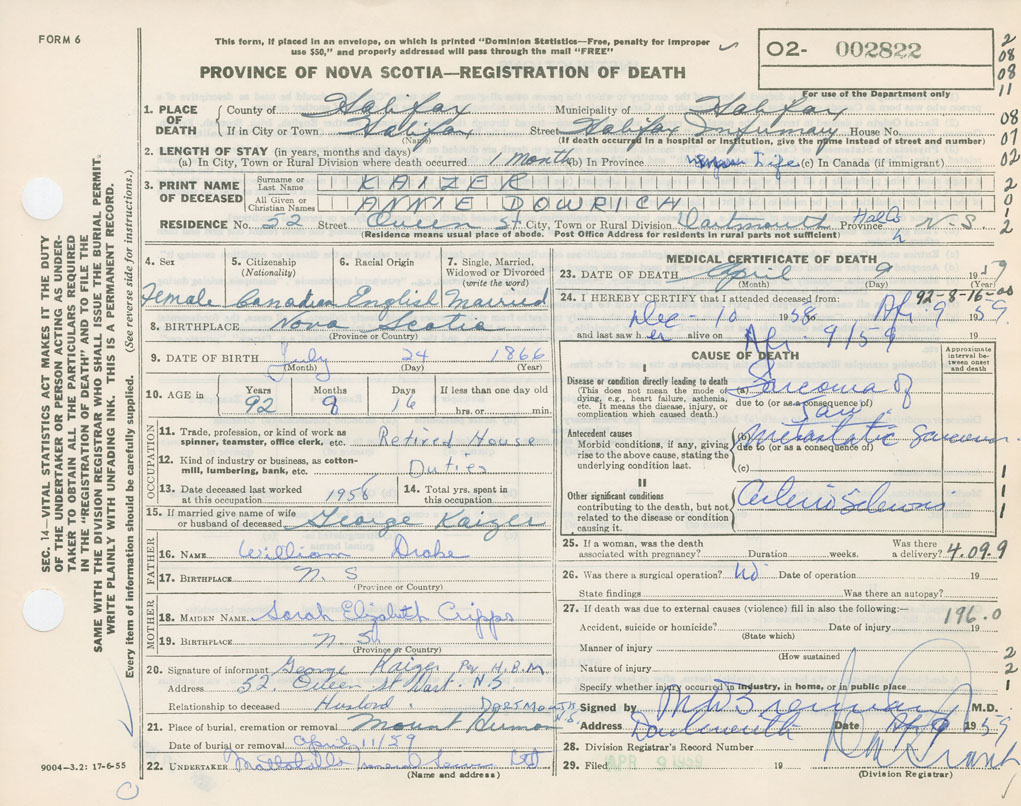 FORM 6
This form, if placed in an envelope, on which is printed "Dominion Statistics—Free, penalty for improper
use $50," and properly addressed will pass through the mail "FREE"
PROVINCE OF NOVA SCOTIA—REGISTRATION OF DEATH
02- 002822
For use of the Department only
2
08
08
11
08
07
02
2
0
1
2
SEC. 14—VITAL STATISTICS ACT MAKES IT THE DUTY
OF THE UNDERTAKER OR PERSON ACTING AS UNDER-
TAKER TO OBTAIN ALL THE PARTICULARS REQUIRED
IN THE "REGISTRATION OF DEATH" AND TO FILE THE
SAME WITH THE DIVISION REGISTRAR WHO SHALL ISSUE THE BURIAL PERMIT.
WRITE PLAINLY WITH UNFADING INK. THIS IS A PERMANENT RECORD.
Every item of information should be carefully supplied. (See reverse side for instructions.)
1. PLACE OF DEATH County of Halifax Municipality of Halifax
If in City or Town Halifax Street Halifax Infirmary House No.
(Name) (If death occurred in a hospital or institution, give the name instead of street and number)
2. LENGTH OF STAY (in years, months and days)
(a) In City, Town or Rural Division where death occurred 1 month (b) In Province Life (c) In Canada (if immigrant)
3. PRINT NAME OF DECEASED Surname or Last Name KAIZER
All Given or Christian Names ANNIE DOWRICH
RESIDENCE No. 52 Street Queen St City, Town or Rural Division Dartmouth Province N S
(Residence means usual place of abode. Post Office Address for residents in rural parts not sufficient)
4. Sex 5. Citizenship (Nationality) 6. Racial Origin 7. Single, Married, Widowed or Divorced (write the word)
Female Canadian English Married
8. BIRTHPLACE Nova Scotia
(Province or Country)
9. DATE OF BIRTH July 24 1866
(Month) (Day) (Year)
10. AGE in Years Months Days If less than one day old
92 8 16 hrs. or min.
OCCUPATION
11. Trade, profession, or kind of work as spinner, teamster, office clerk, etc. Retired House
12. Kind of industry or business, as cotton-mill, lumbering, bank, etc. Duties
13. Date deceased last worked at this occupation 1956 14. Total yrs. spent in this occupation
15. If married give name of wife or husband of deceased George Kaizer
FATHER
16. NAME William Drake
17. BIRTHPLACE N. S
(Province or Country)
MOTHER
18. MAIDEN NAME Sarah Elizabeth Cripps
19. BIRTHPLACE N. S
(Province or Country)
20. Signature of informant George Kaizer Per H.B.M
Address 52 Queen St Dart. N.S
Relationship to deceased Husband. Dartmouth N.S
21. Place of burial, cremation or removal Mount Hermon
Date of burial or removal April 11/59
22. UNDERTAKER Mattatalls Funeral Service Ltd
(Name and address)
9004—3.2: 17-6-55
MEDICAL CERTIFICATE OF DEATH
23. DATE OF DEATH April 9 1959
(Month) (Day) (Year)
92-8-16-00
24. I HEREBY CERTIFY that I attended deceased from:
Dec - 10 1958 Apr. 9 1959
and last saw her alive on Apr. 9/59
CAUSE OF DEATH
Approximate interval between onset and death
I
Disease or condition directly leading to death (a) Sarcoma of
(This does not mean the mode of dying, e.g., heart failure, asthenia, etc. It means the disease, injury, or complication which caused death.) due to (or as a consequence of) Jaw
Antecedent causes (b) metastatic Sarcoma
Morbid conditions, if any, giving rise to the above cause, stating the underlying condition last. due to (or as a consequence of)
(c)
1
II
Other significant conditions Arterio Sclerosis
contributing to the death, but not related to the disease or condition causing it.
1
1
25. If a woman, was the death associated with pregnancy? Duration weeks. Was there a delivery? 4.09.9
26. Was there a surgical operation? No Date of operation 19
State findings Was there an autopsy?
27. If death was due to external causes (violence) fill in also the following:—
196.0
Accident, suicide or homicide? Date of injury 19
(State which)
Manner of injury 2
(How sustained)
Nature of injury 2
Specify whether injury occurred in industry, in home, or in public place 1
Signed by M.D.
Address Dartmouth Date Apr 9 1959
28. Division Registrar's Record Number
29. Filed APR 9 1959 19 Grant
(Division Registrar)